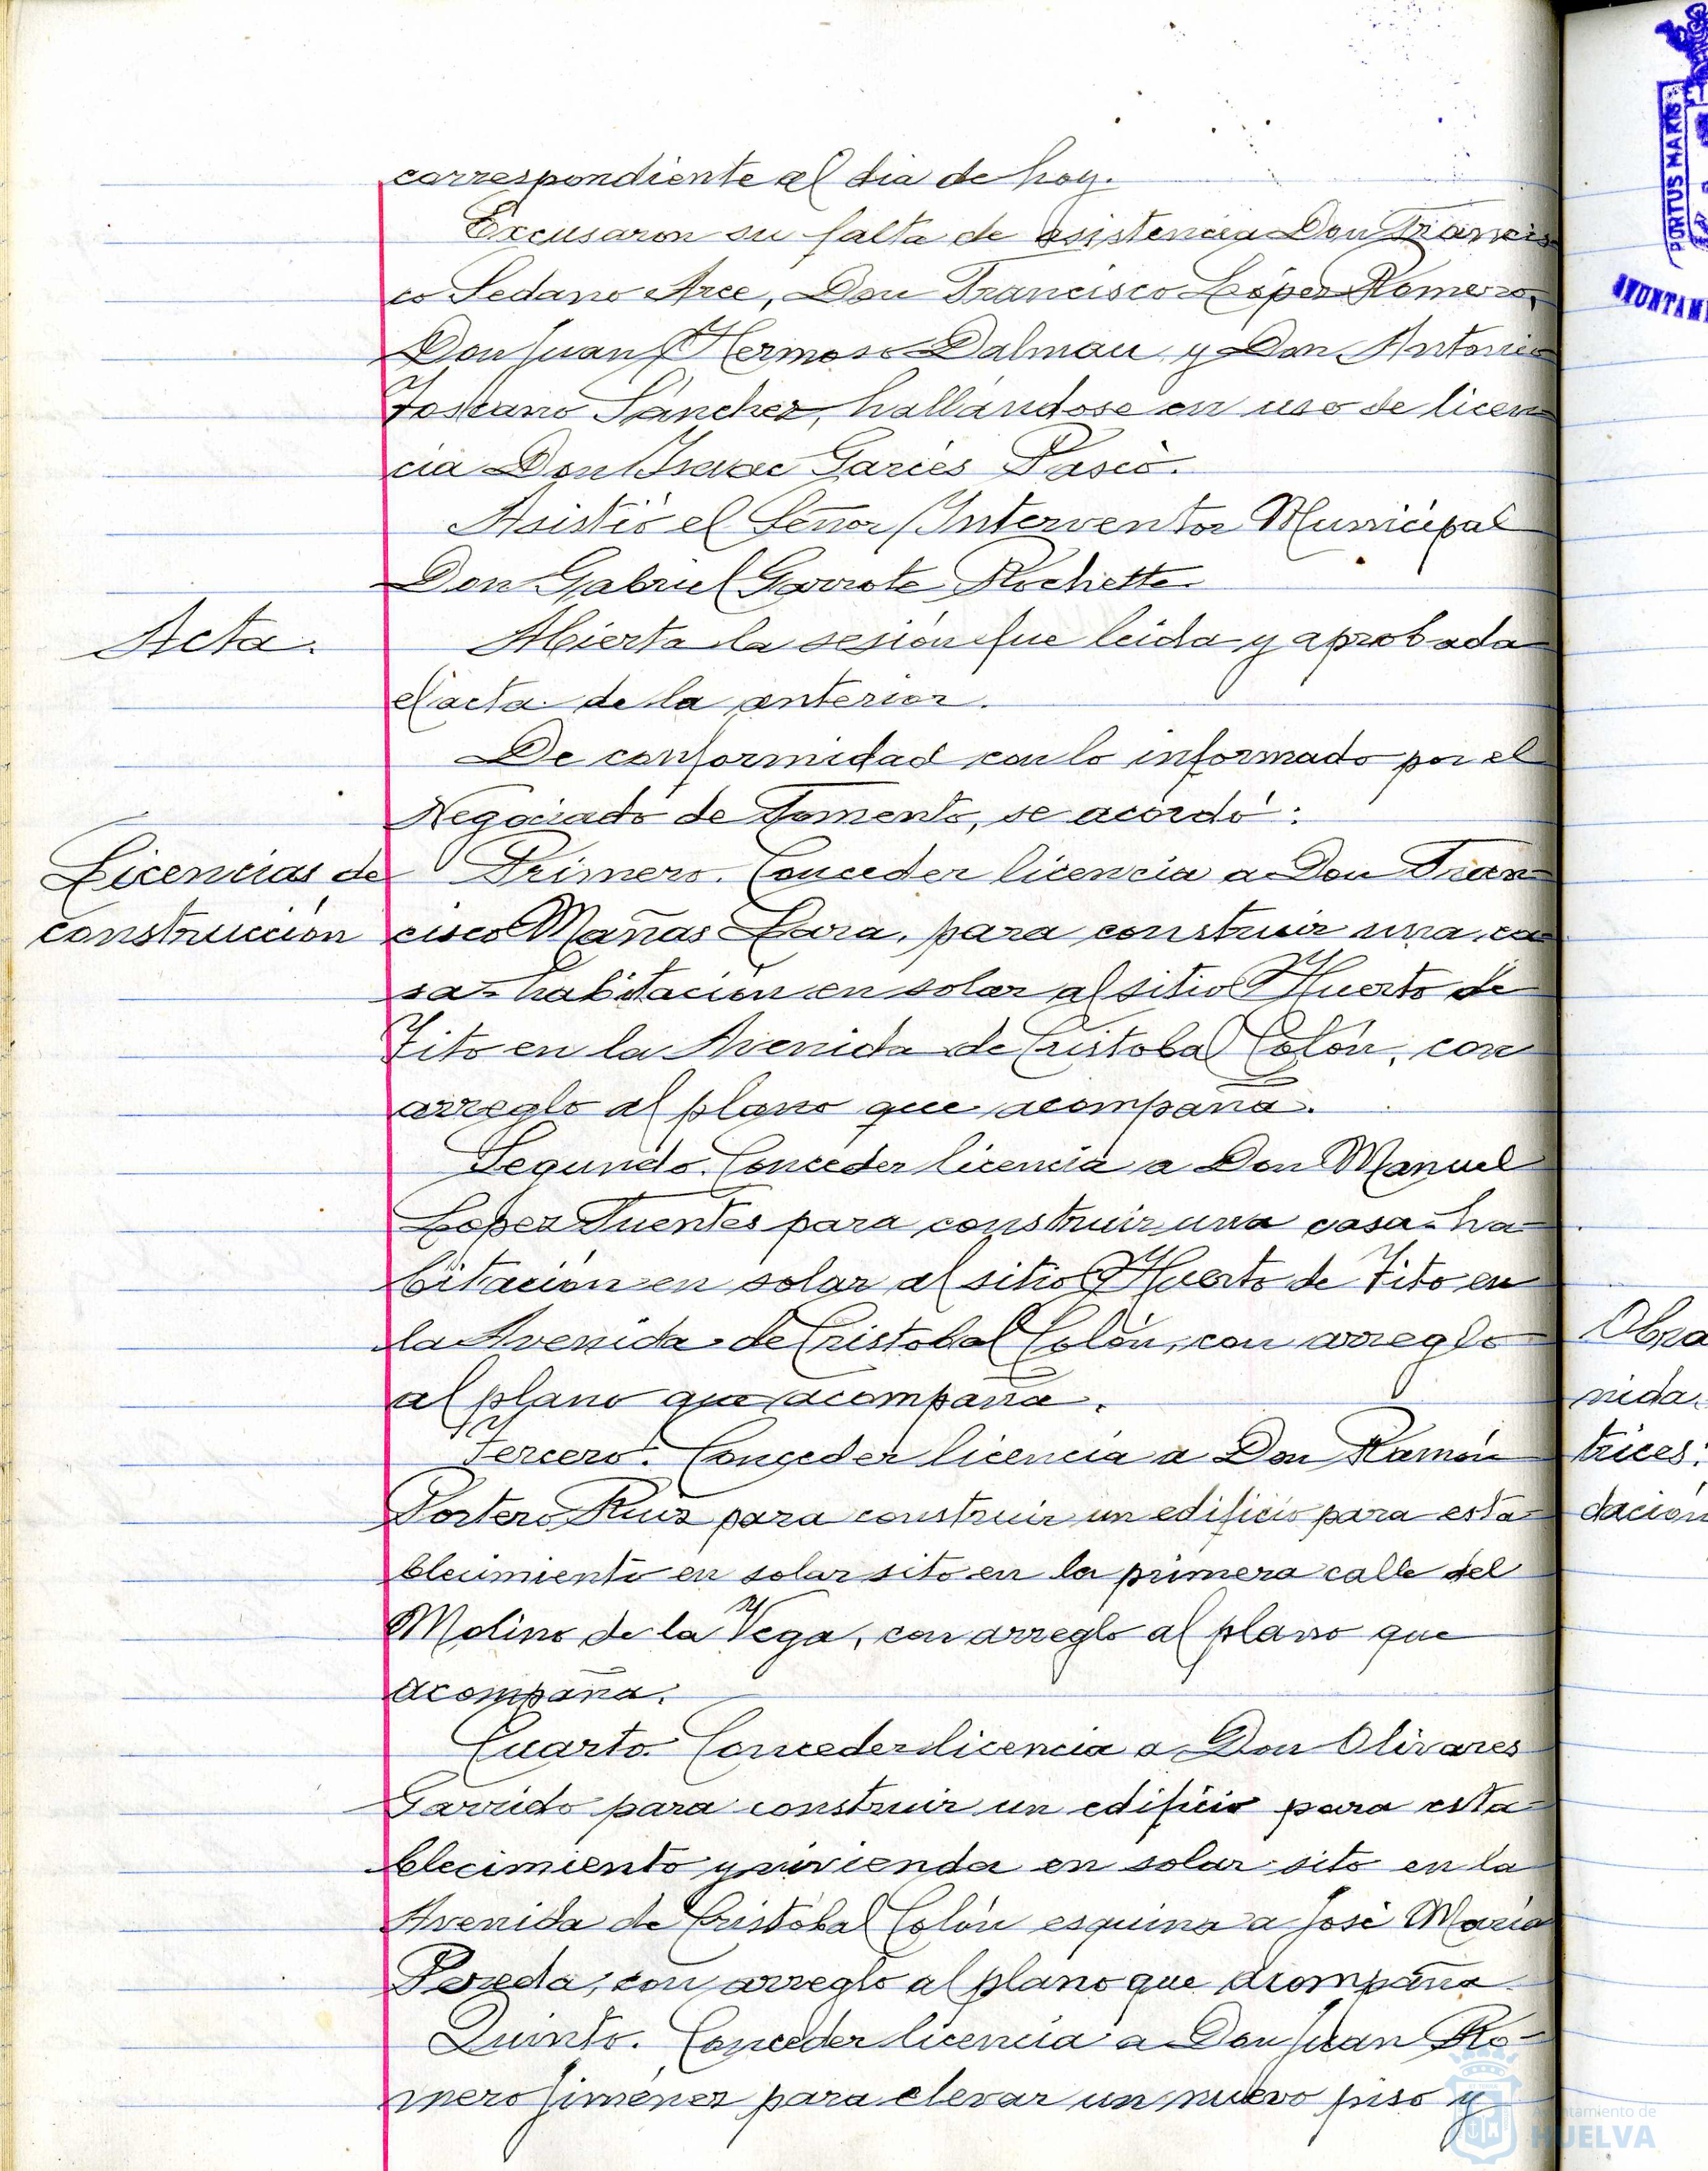 correspondiente al dia de hoy.
Excusaron su falta de asistencia Don Francis
co Sedano Arce, Don Francisco López Romero,
Don Juan Hermoso Dalmau y Don Antonio
Toscano Sánchez, hallándose en uso de licen
cia Don Isaac Garcés Pasc
Asistió el Señor Interventor Municipal
Don Gabriel Garrote Rochette.
Acta.
Abierta la sesión fue leida y aprobada
el acta de la anterior.
De conformidad con lo informado por el
Negociado de Fomento, se acordó:
Licencias de
construcción
Primero. Conceder licencia a Don Fran
cisco Mañas Lara, para construir una ca
sa-habitación en solar al sitio Huerto de
Tito en la Avenida de Cristobal Colón, con
arreglo al plano que acompaña.
Segundo. Conceder licencia a Don Manuel
López Fuentes para construir una casa-ha-
bitación en solar al sitio Huerto de Tito en
la Avenida de Cristobal Colón, con arreglo
al plano que acompaña.
Tercero. Conceder licencia a Don Ramón
Portero Ruiz para construir un edificio para esta-
blecimiento en solar sito en la primera calle del
Molino de la Vega, con arreglo al plano que
acompaña.
Cuarto. Conceder licencia a Don Olivares
Garrido para construir un edificio para esta-
blecimiento y vivienda en solar sito en la
Avenida de Cristóbal Colón esquina a José María
Pereda, con arreglo al plano que acompaña.
Quinto. Conceder licencia a Don Juan Ro-
mero Jiménez para elevar un nuevo piso y
PORTUS MARIS
AYUNTAM
Obra
nida
trices:
dación
Ayuntamiento de
HUELVA